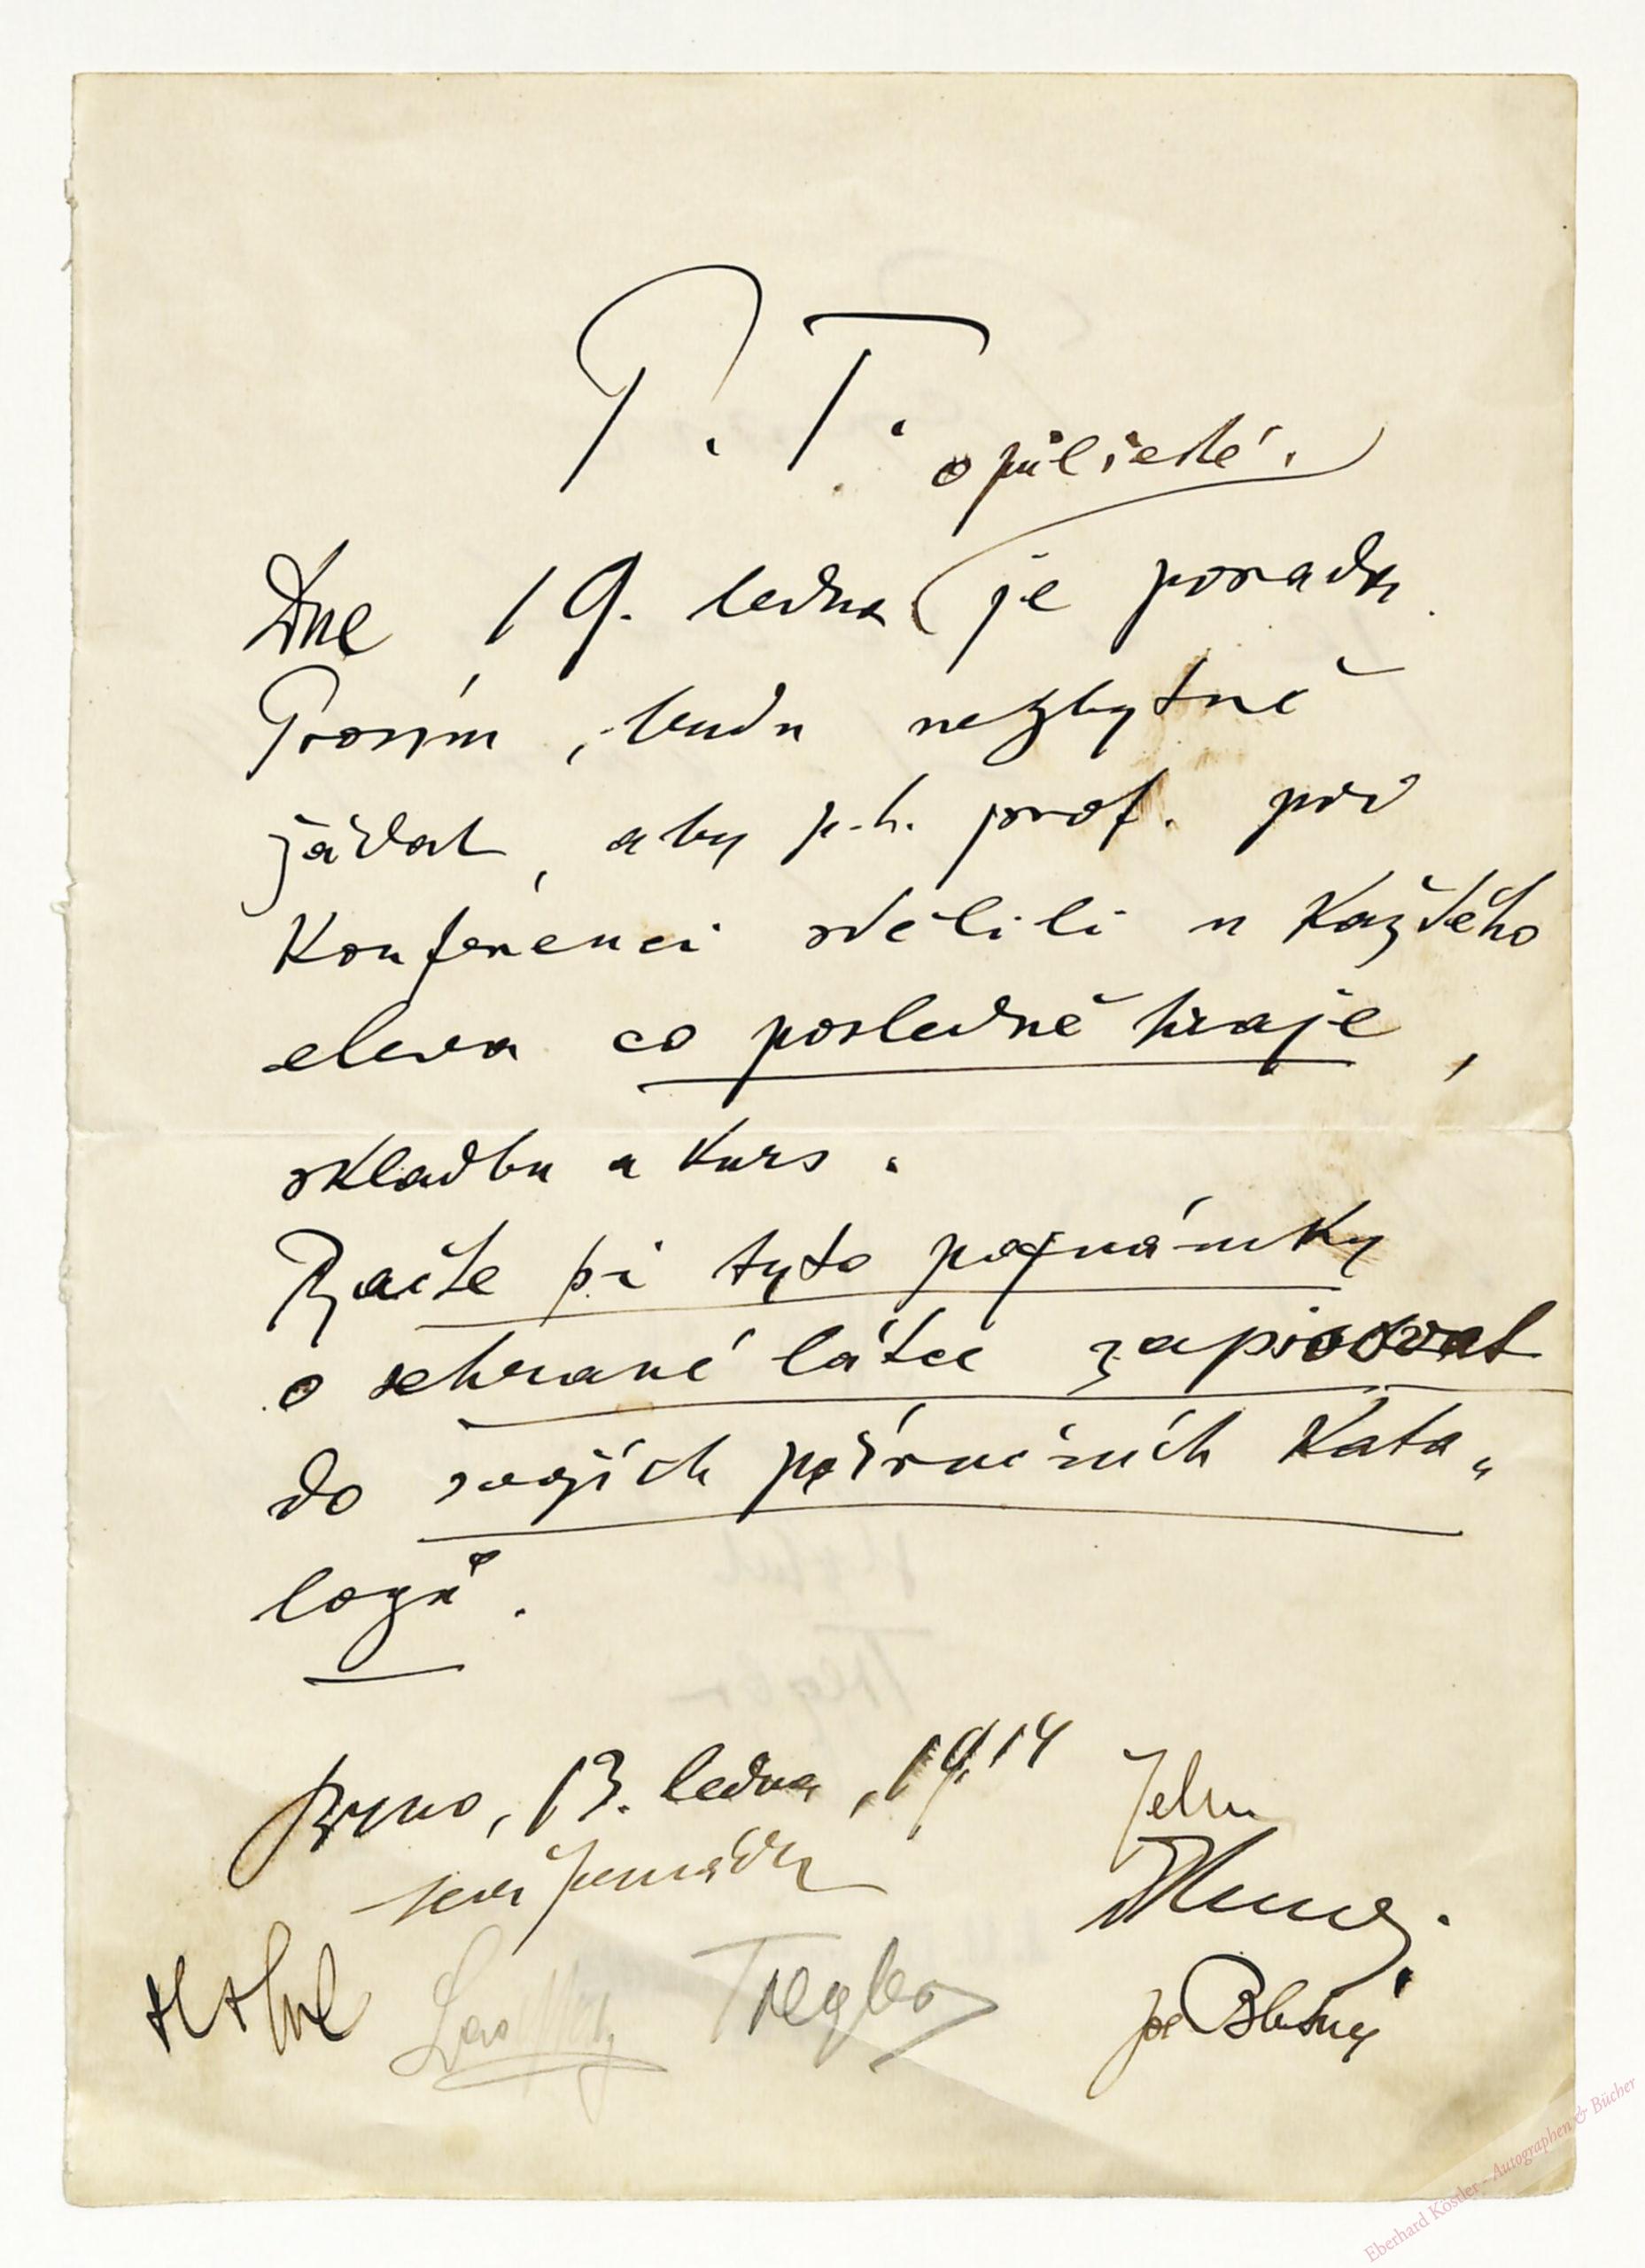 P. T.
o půl šesté.
Dne 19. ledna je porada.
Prosím, budu nezbytně
žádat, aby p. t. prof. při
Konferenci sdělili u Každého
eleva co posledně hraje,
skladbu a Kurs.
Račte si tyto poznámky
o sehrané látce zapisovat
do svojích příručních Kata„
logů.
Brno, 13. ledna, 1914
Tregler
Blatný
Eberhard Köstler - Autographen & Bücher